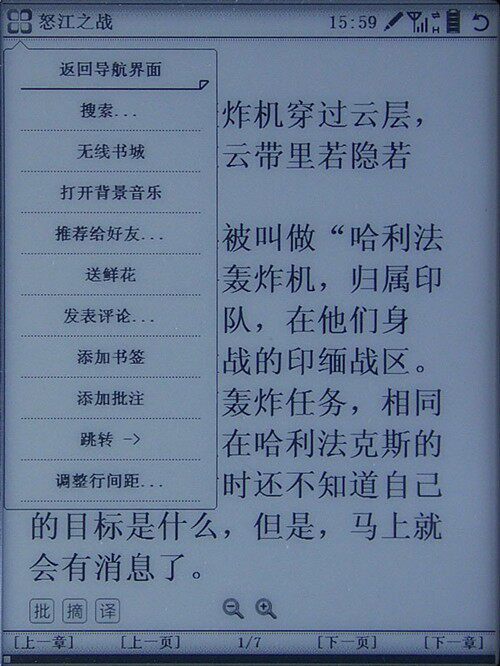 怒江之战 15:59 H
返回导航界面
搜索...
无线书城
打开背景音乐
推荐给好友...
送鲜花
发表评论...
添加书签
添加批注
跳转 ->
调整行间距...
炸机穿过云层，
云带里若隐若
被叫做“哈利法
轰炸机，归属印
队，在他们身
战的印缅战区。
轰炸任务，相同
在哈利法克斯的
时还不知道自己
的目标是什么，但是，马上就
会有消息了。
批 摘 译
[上一章] [上一页] 1/7 [下一页] [下一章]